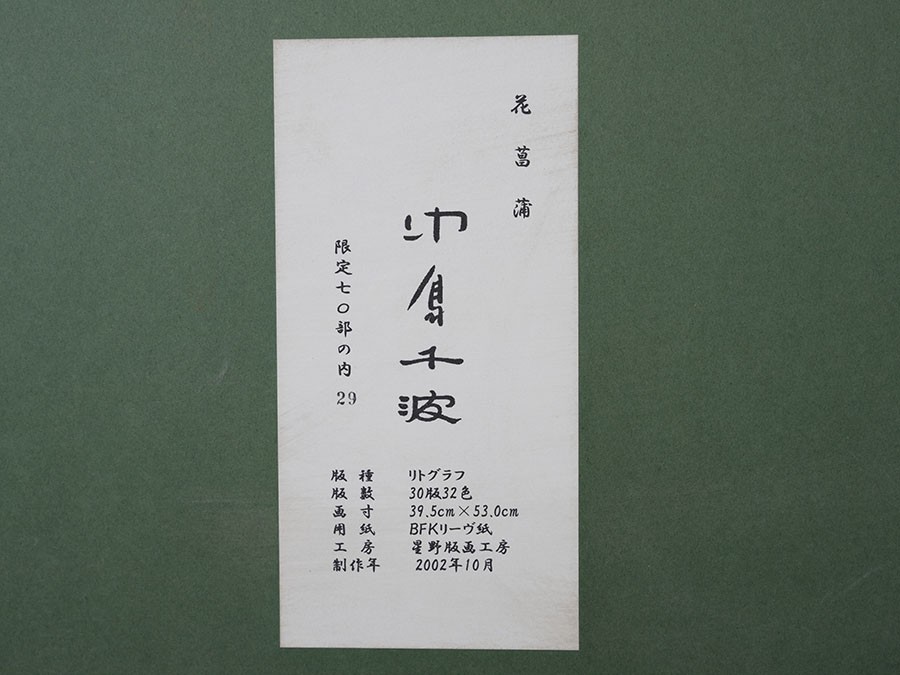 花菖蒲
中島千波
限定七〇部の内 29
版種 リトグラフ
版数 30版32色
画寸 39.5cm×53.0cm
用紙 BFKリーヴ紙
工房 星野版画工房
制作年 2002年10月